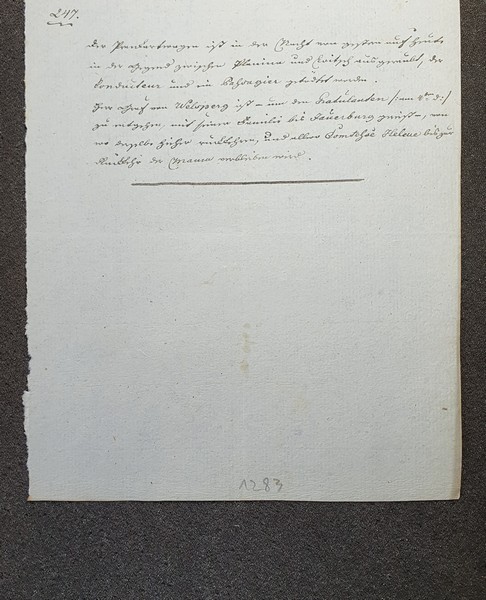 247.
Der Brandartwagen ist in der Nacht von gestern auf heute
in der Gegend zwischen Planina und Loitsch ausgeraubt, der
Conducteur und ein Passagier getödtet worden.
Herr Graf von Welsperg ist – um den Gratulanten /:am 4ten d:/
zu entgehen, mit seiner Familie bis Sauerburg gereist –, von
wo derselbe hieher rückkehren, und allein Comtesse Helene bis zur
Rückkehr der Mama verbleiben wird.
1283